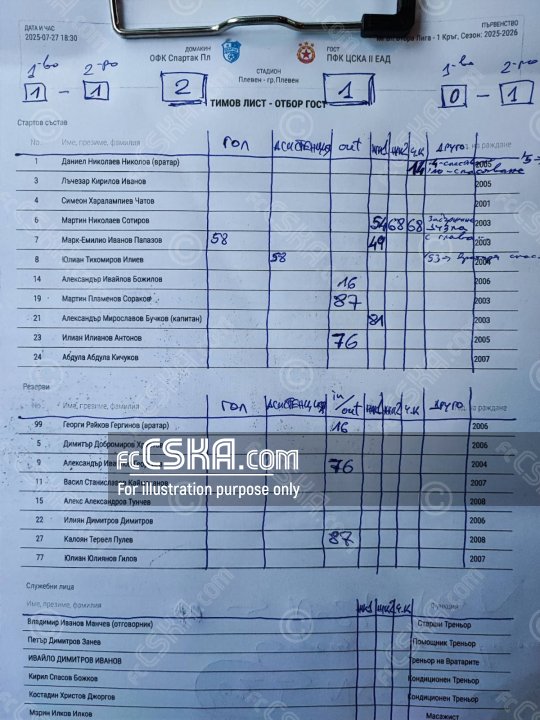 ДАТА И ЧАС
2025-07-27 18:30
ДОМАКИН
ОФК Спартак Пл
ГОСТ
ПФК ЦСКА II ЕАД
ПЪРВЕНСТВО
Втора Лига - 1 Кръг, Сезон: 2025-2026
СТАДИОН
Плевен - гр.Плевен
1-во 2-ро
1 - 1
2
1
1-во 2-ро
0 - 1
ТИМОВ ЛИСТ - ОТБОР ГОСТ
Стартов състав
No. Име, презиме, фамилия ГОЛ АСИСТЕНЦИЯ out ЖК1 ЖК2 Ч.К ДРУГО на раждане
1 Даниел Николаев Николов (вратар) 14 2005
3 Лъчезар Кирилов Иванов 2005
4 Симеон Харалампиев Чатов 2001
6 Мартин Николаев Сотиров 54 68 68 2003
7 Марк-Емилио Иванов Папазов 58 49 с глава 2003
8 Юлиан Тихомиров Илиев 58
14 Александър Ивайлов Божилов 16 2006
19 Мартин Пламенов Сораков 87 2003
21 Александър Мирославов Бучков (капитан) 81 2003
23 Илиан Илианов Антонов 76 2005
24 Абдула Абдула Кичуков 2007
Резерви
No. Име, презиме, фамилия ГОЛ АСИСТЕНЦИЯ in/out ЖК1 ЖК2 Ч.К ДРУГО на раждане
99 Георги Райков Гергинов (вратар) 16 2006
5 Димитър Добромиров 2006
9 Александър 76 2004
11 Васил 2007
15 Алекс Александров Тунчев 2008
22 Илиян Димитров Димитров 2006
27 Калоян Тервел Пулев 87 2008
77 Юлиан Юлиянов Гилов 2007
fcCSKA.com
For illustration purpose only
Служебни лица
Име, презиме, фамилия ЖК1 ЖК2 Ч.К Функция
Владимир Иванов Манчев (отговорник) Старши Треньор
Петър Димитров Занев Помощник Треньор
ИВАЙЛО ДИМИТРОВ ИВАНОВ Треньор на Вратарите
Кирил Спасов Божков Кондиционен Треньор
Костадин Христов Джоргов Кондиционен Треньор
Марин Илков Илков Масажист